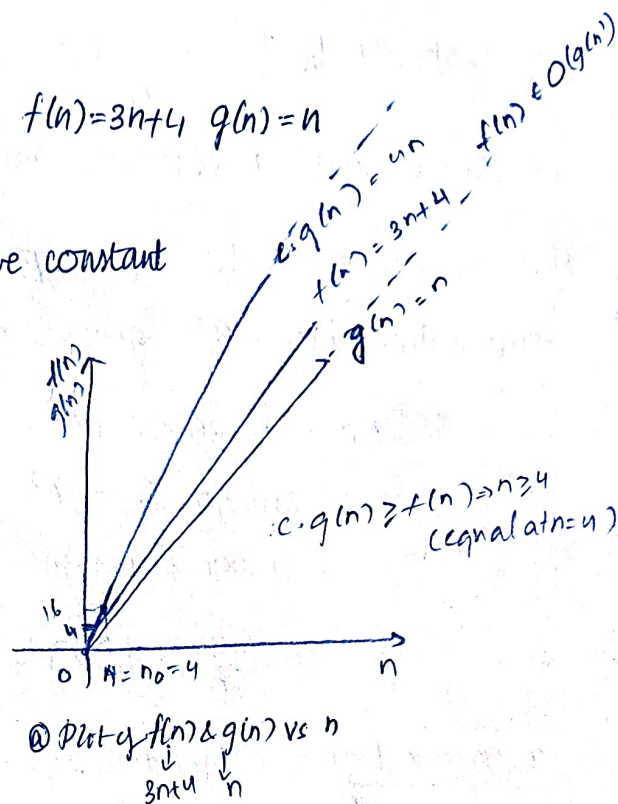 f(n)=3n+4 g(n)=n
ve constant
c·g(n)=4n
f(n)=3n+4
f(n) ∈ O(g(n))
g(n)=n
f(n)
g(n)
c.g(n)≥f(n)⇒n≥4
(equal at n=4)
16
4
0 n=n₀=4 n
ⓐ Plot of f(n) & g(n) vs n
↓ ↓
3n+4 n